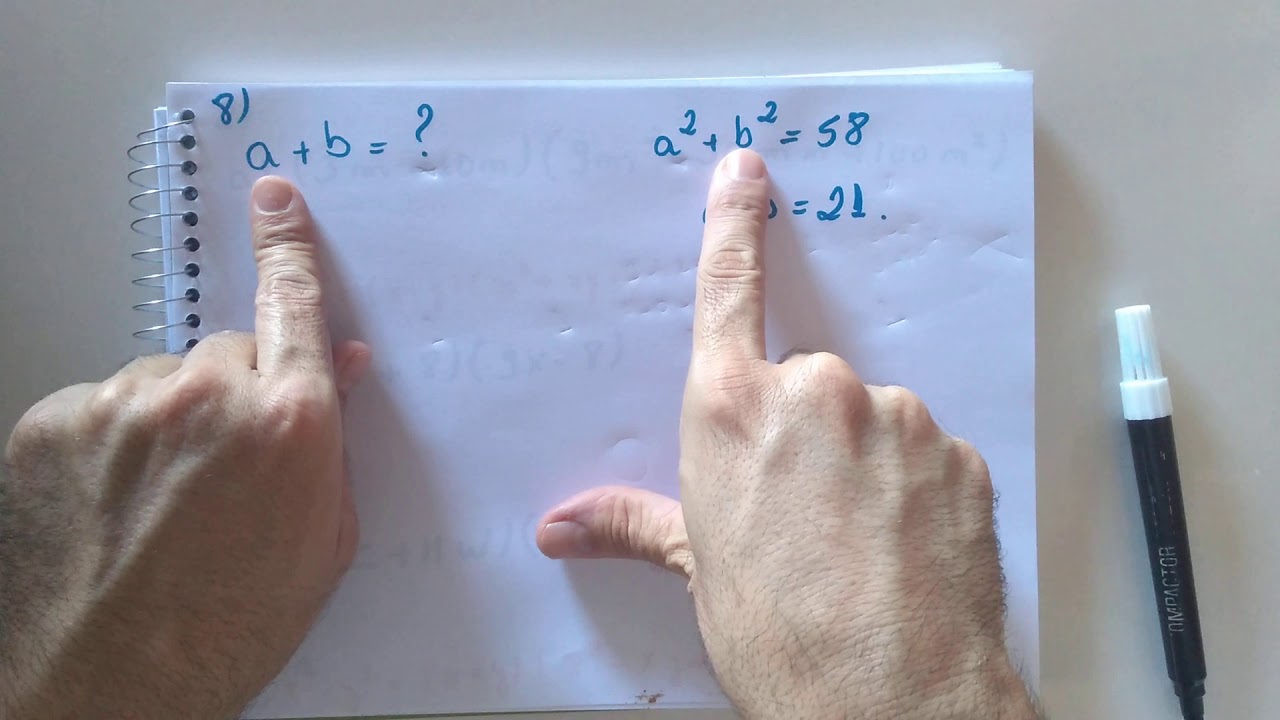 8)
a + b = ?
a² + b² = 58
= 21.
OMPACTOR